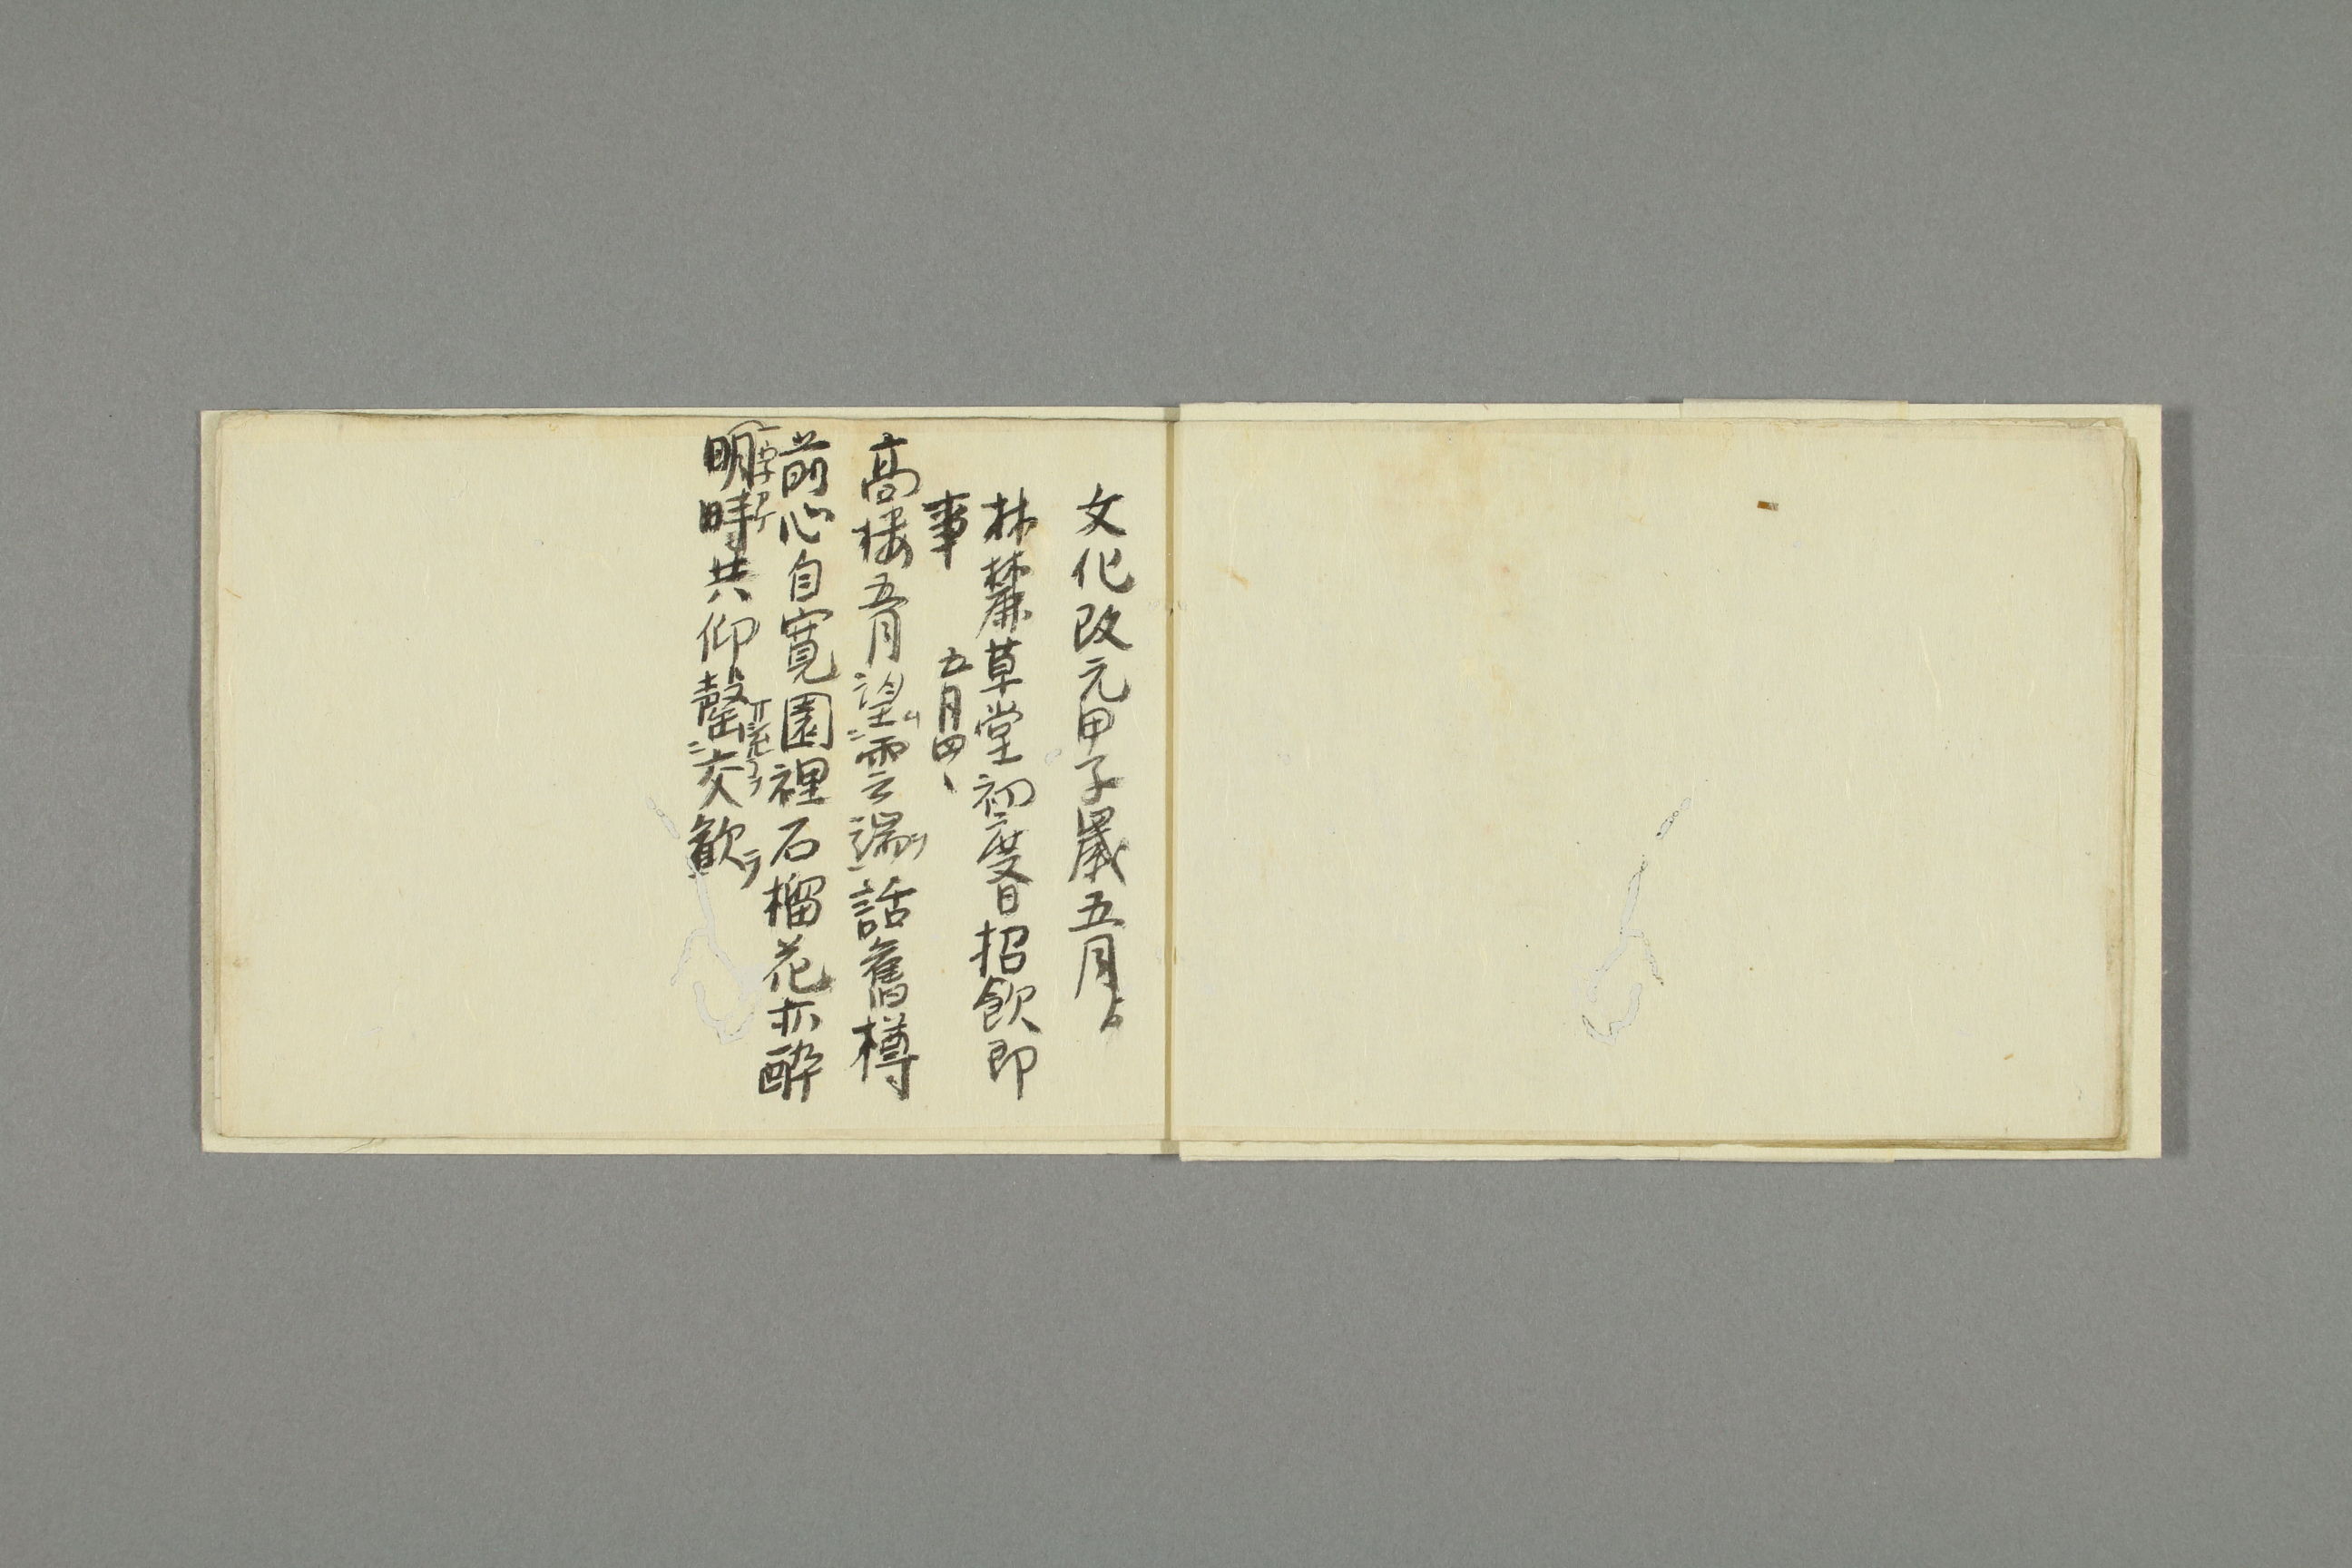 文化改元甲子歳五月ゟ
林麓草堂初度日招飲即
事　五月四、
高楼五月望雲端話舊樽
前心自寛園裡石榴花亦醉
明時共仰罄交歓